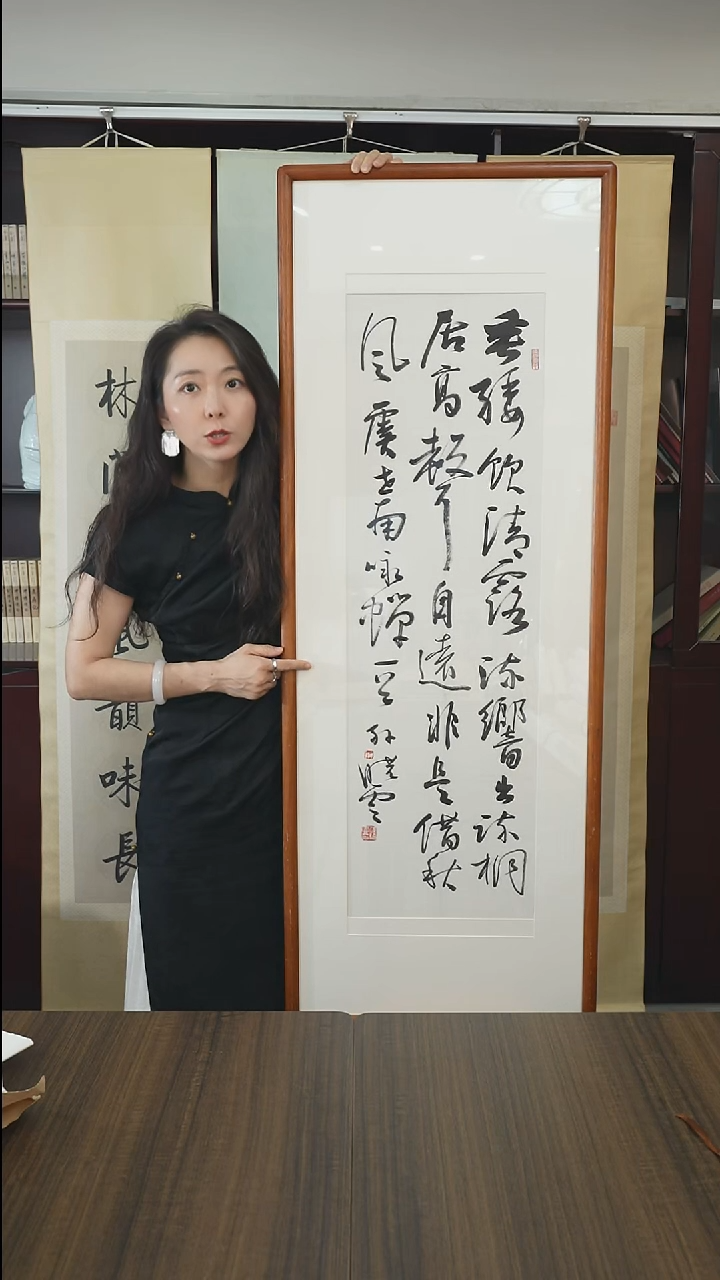 垂緌飲清露流響出疏桐
居高聲自遠非是借秋
風 虞世南詠蟬一首 孫曉雲
林
韻味長